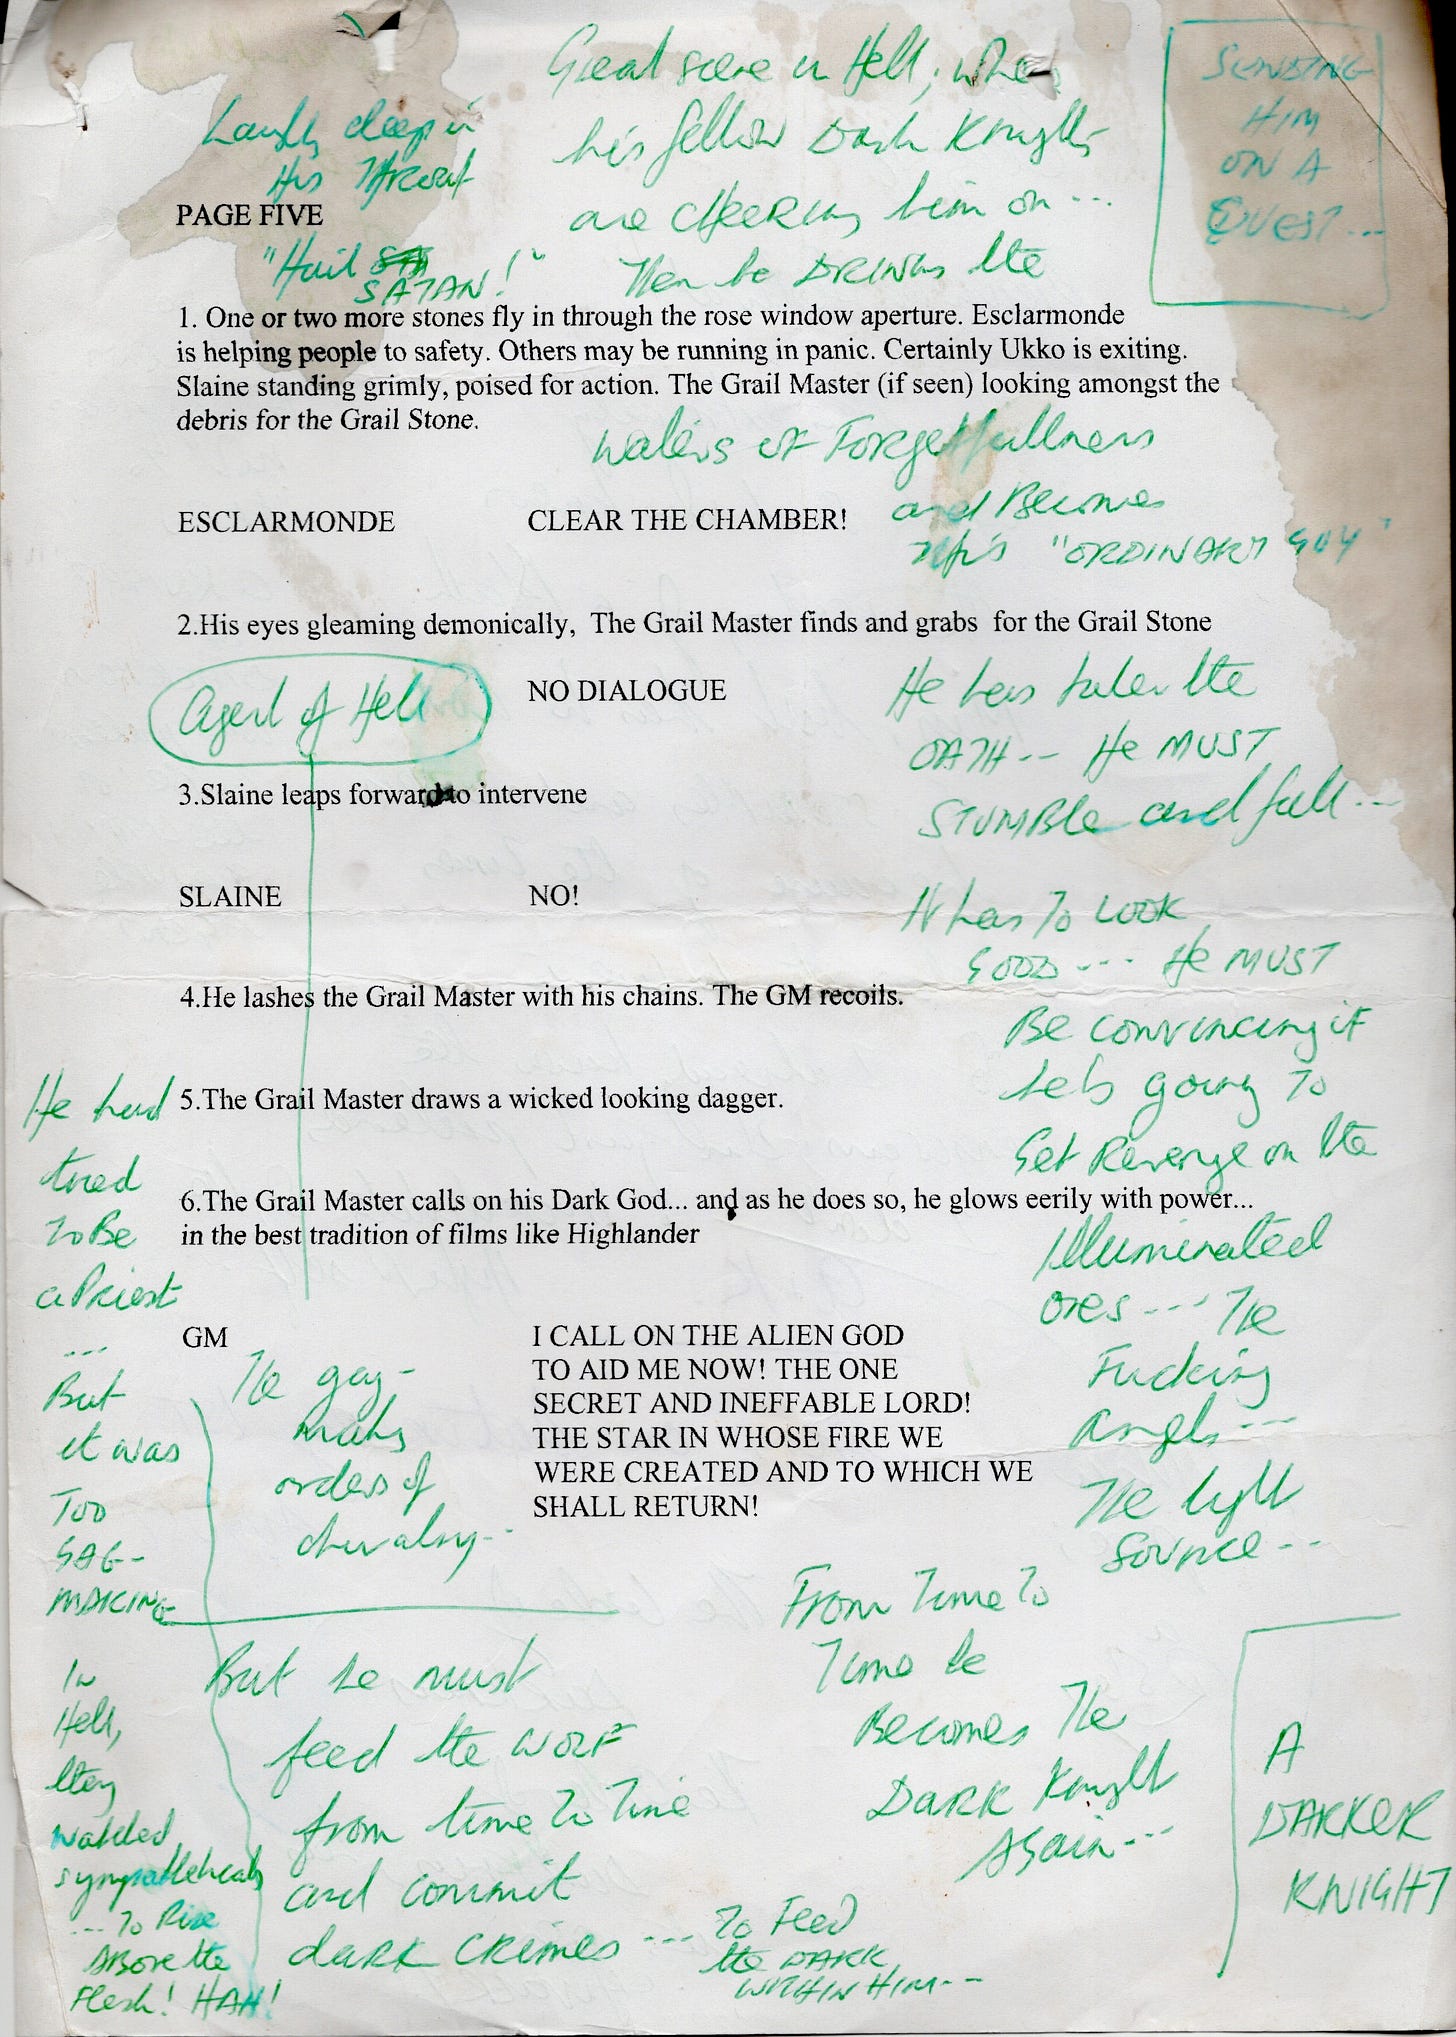 Great scene in Hell, when
his fellow Dark Knights
are cheering him on ...
Then he DRINKS the
Waters of Forgetfullness
and Becomes
this "ORDINARY GUY"
SENDING
HIM
ON A
QUEST...
Laughs deep in
His Throat
"Hail
SATAN!"
PAGE FIVE
1. One or two more stones fly in through the rose window aperture. Esclarmonde
is helping people to safety. Others may be running in panic. Certainly Ukko is exiting.
Slaine standing grimly, poised for action. The Grail Master (if seen) looking amongst the
debris for the Grail Stone.
ESCLARMONDE CLEAR THE CHAMBER!
2.His eyes gleaming demonically,  The Grail Master finds and grabs  for the Grail Stone
Agent of Hell
NO DIALOGUE
3.Slaine leaps forward to intervene
SLAINE NO!
4.He lashes the Grail Master with his chains. The GM recoils.
5.The Grail Master draws a wicked looking dagger.
6.The Grail Master calls on his Dark God... and as he does so, he glows eerily with power...
in the best tradition of films like Highlander
GM I CALL ON THE ALIEN GOD
TO AID ME NOW! THE ONE
SECRET AND INEFFABLE LORD!
THE STAR IN WHOSE FIRE WE
WERE CREATED AND TO WHICH WE
SHALL RETURN!
He has taken the
OATH -- He MUST
STUMBLE and fall --
It has To LOOK
GOOD --- He MUST
Be convincing if
he's going To
Get Revenge on the
Illuminated
ones --- The
Fucking
angels ---
The light
Source --
He had
tried
To Be
a Priest
...
But
it was
Too
GAG-
MAKING
The gag-
making
orders of
chivalry --
In
Hell,
they
nodded
sympathetically
... To Rise
Above the
Flesh! HAH!
But he must
feed the WOLF
from time To Time
and commit
dark CRIMES --- To Feed
the DARK
WITHIN HIM --
From Time To
Time he
Becomes The
DARK Knight
AGain ---
A
DARKER
KNIGHT